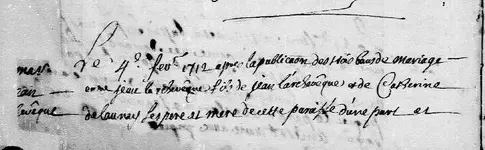 Le 4e. fevr. 1712 apres la publicaon des trois bans de mariage
entre jean larchevêque fils de jean larchevêque & de Catherine
delaunay ses pere et mere de cette paroisse d'une part et